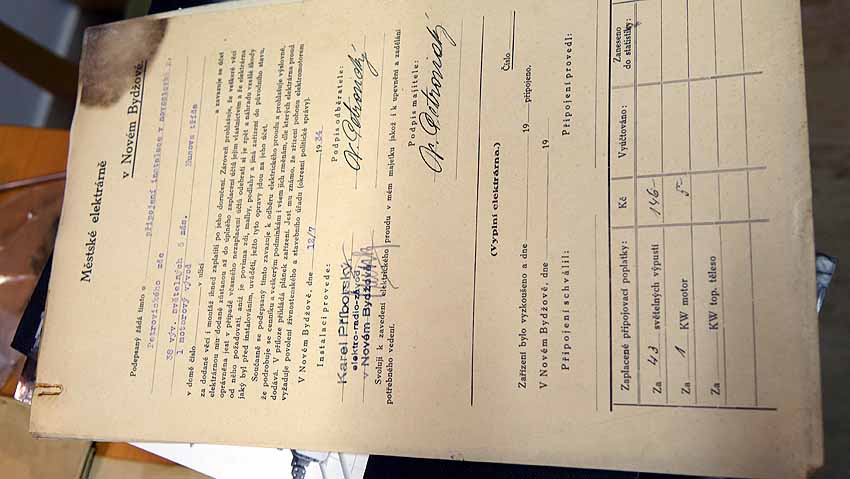 Městské elektrárně
v Novém Bydžově.
Podepsaný žádá tímto o připojení instalace v novostavbě p.
Petrovického zde
38 výv. světelných 5 zás.
1 motorový vývod Husova třída
v domě číslo v ulici a zavazuje se účet
za dodané věci i montáž ihned zaplatiti po jeho doručení. Zároveň prohlašuje, že veškeré věci
elektrárnou mu dodané zůstanou až do úplného zaplacení účtů jejím vlastnictvem a že elektrárna
oprávněna jest v případě včasného nezaplacení účtů odebrati si je zpět a náhradu vzešlé škody
od něho požadovati, aniž je povinna zdi, malby, podlahy a jiná zařízení do původního stavu,
jaký byl před instalováním, uváděti, ježto tyto opravy jdou na jeho účet.
Současně se podepsaný tímto zavazuje k odběru elektrického proudu a prohlašuje výslovně,
že podrobuje se ceníku a veškerým podmínkám i všem jich změnám, dle kterých elektrárna proud
dodává. V příloze přikládá plánek zařízení. Jest mu známo, že zřízení pohonu elektromotorem
vyžaduje povolení živnostenského a stavebního úřadu (okresní politické správy).
V Novém Bydžově, dne 12/7 1934
Instalaci provede: Podpis odběratele:
Karel Příborský
elektro-radio-závod
v Novém Bydžově
Svoluji k zavedení elektrického proudu v mém majetku jakož i k upevnění a zadělání
potřebného vedení.
Podpis majitele:
(Vyplní elektrárna.)
Číslo
Zařízení bylo vyzkoušeno a dne 19 připojeno.
V Novém Bydžově, dne 19
Připojení schválil: Připojení provedl:
Zaplacené připojovací poplatky: Kč Vyúčtováno: Zaneseno do statistiky:
Za 43 světelných výpustí 146
Za 1 KW motor 5
Za KW top. těleso